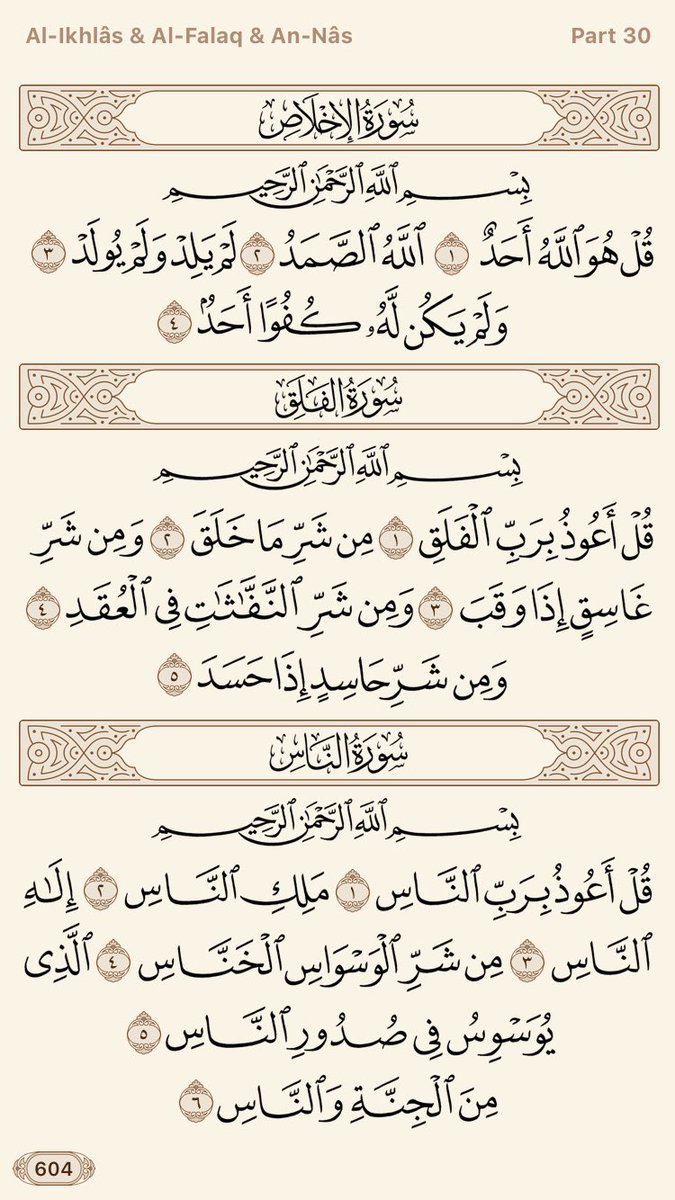 Al-Ikhlâs & Al-Falaq & An-Nâs Part 30
سُورَةُ الإِخْلَاصِ
بِسْمِ ٱللَّهِ ٱلرَّحْمَٰنِ ٱلرَّحِيمِ
قُلْ هُوَ ٱللَّهُ أَحَدٌ ١ ٱللَّهُ ٱلصَّمَدُ ٢ لَمْ يَلِدْ وَلَمْ يُولَدْ ٣
وَلَمْ يَكُن لَّهُۥ كُفُوًا أَحَدٌۢ ٤
سُورَةُ الفَلَقِ
بِسْمِ ٱللَّهِ ٱلرَّحْمَٰنِ ٱلرَّحِيمِ
قُلْ أَعُوذُ بِرَبِّ ٱلْفَلَقِ ١ مِن شَرِّ مَا خَلَقَ ٢ وَمِن شَرِّ
غَاسِقٍ إِذَا وَقَبَ ٣ وَمِن شَرِّ ٱلنَّفَّٰثَٰتِ فِى ٱلْعُقَدِ ٤
وَمِن شَرِّ حَاسِدٍ إِذَا حَسَدَ ٥
سُورَةُ النَّاسِ
بِسْمِ ٱللَّهِ ٱلرَّحْمَٰنِ ٱلرَّحِيمِ
قُلْ أَعُوذُ بِرَبِّ ٱلنَّاسِ ١ مَلِكِ ٱلنَّاسِ ٢ إِلَٰهِ
ٱلنَّاسِ ٣ مِن شَرِّ ٱلْوَسْوَاسِ ٱلْخَنَّاسِ ٤ ٱلَّذِى
يُوَسْوِسُ فِى صُدُورِ ٱلنَّاسِ ٥
مِنَ ٱلْجِنَّةِ وَٱلنَّاسِ ٦
604